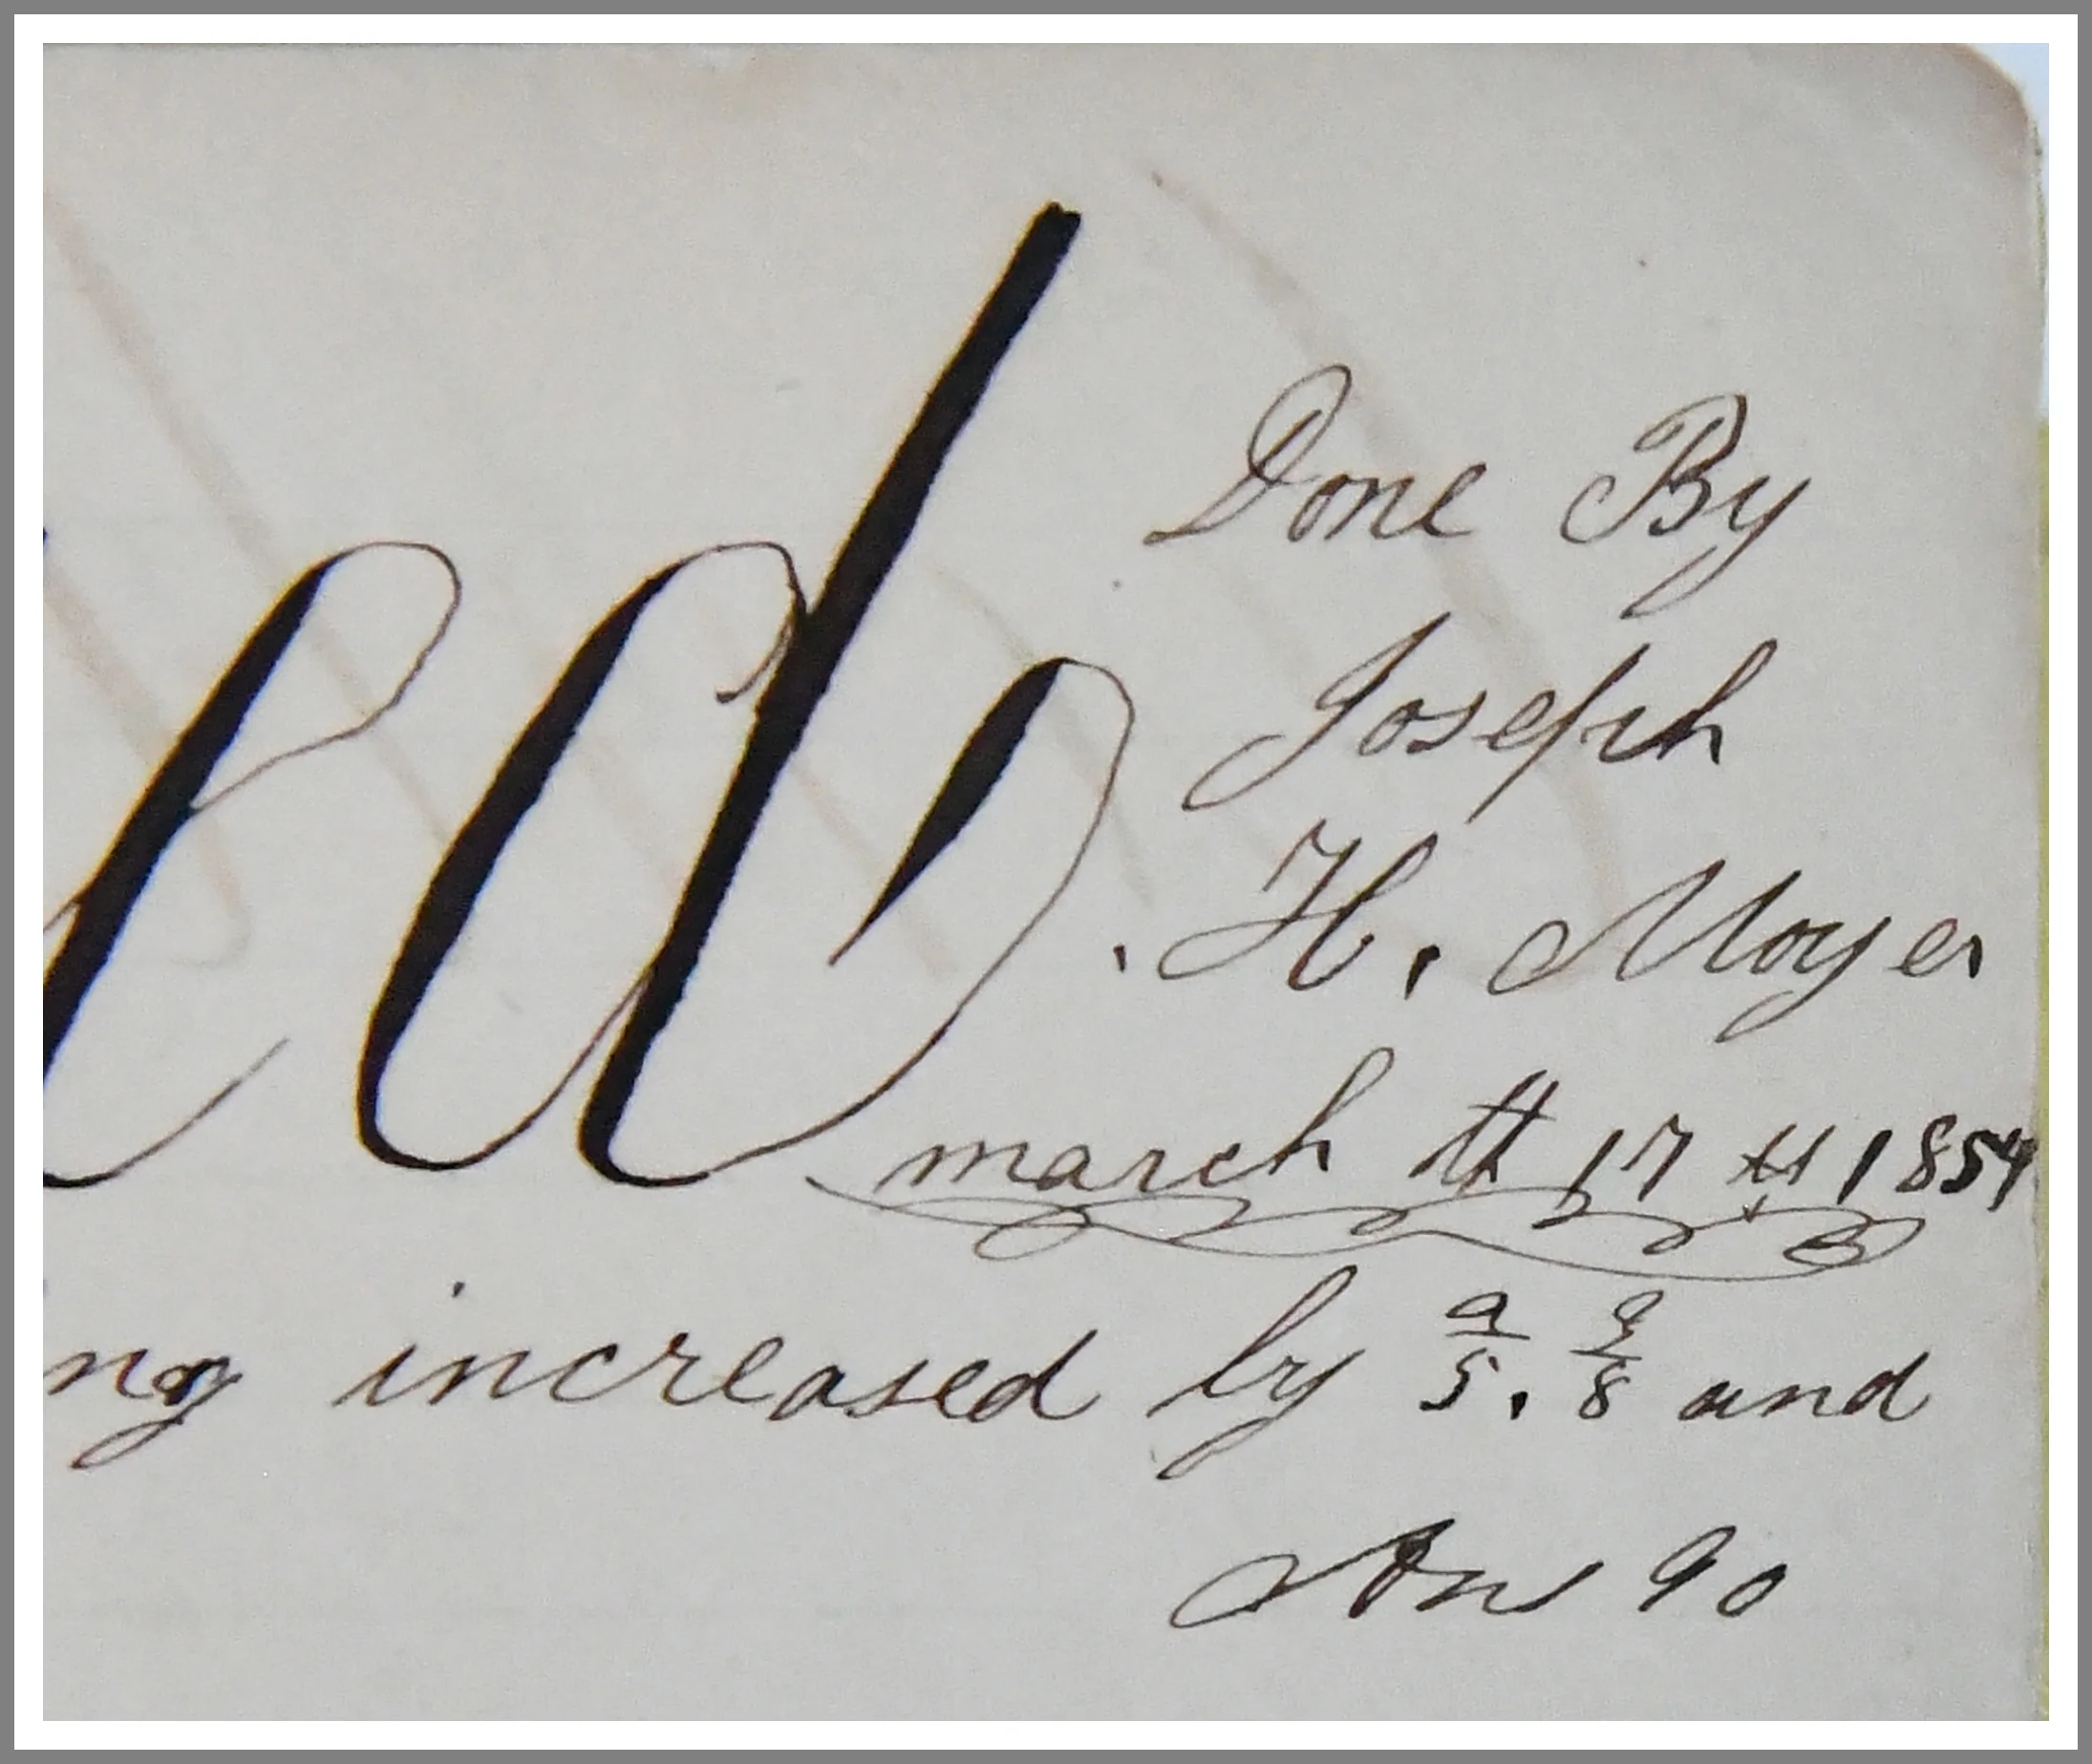 ed
Done By
Joseph
. H. Moyer
march th 17 th 1854
ng increased by 2/5. 3/8 and
Ans 90